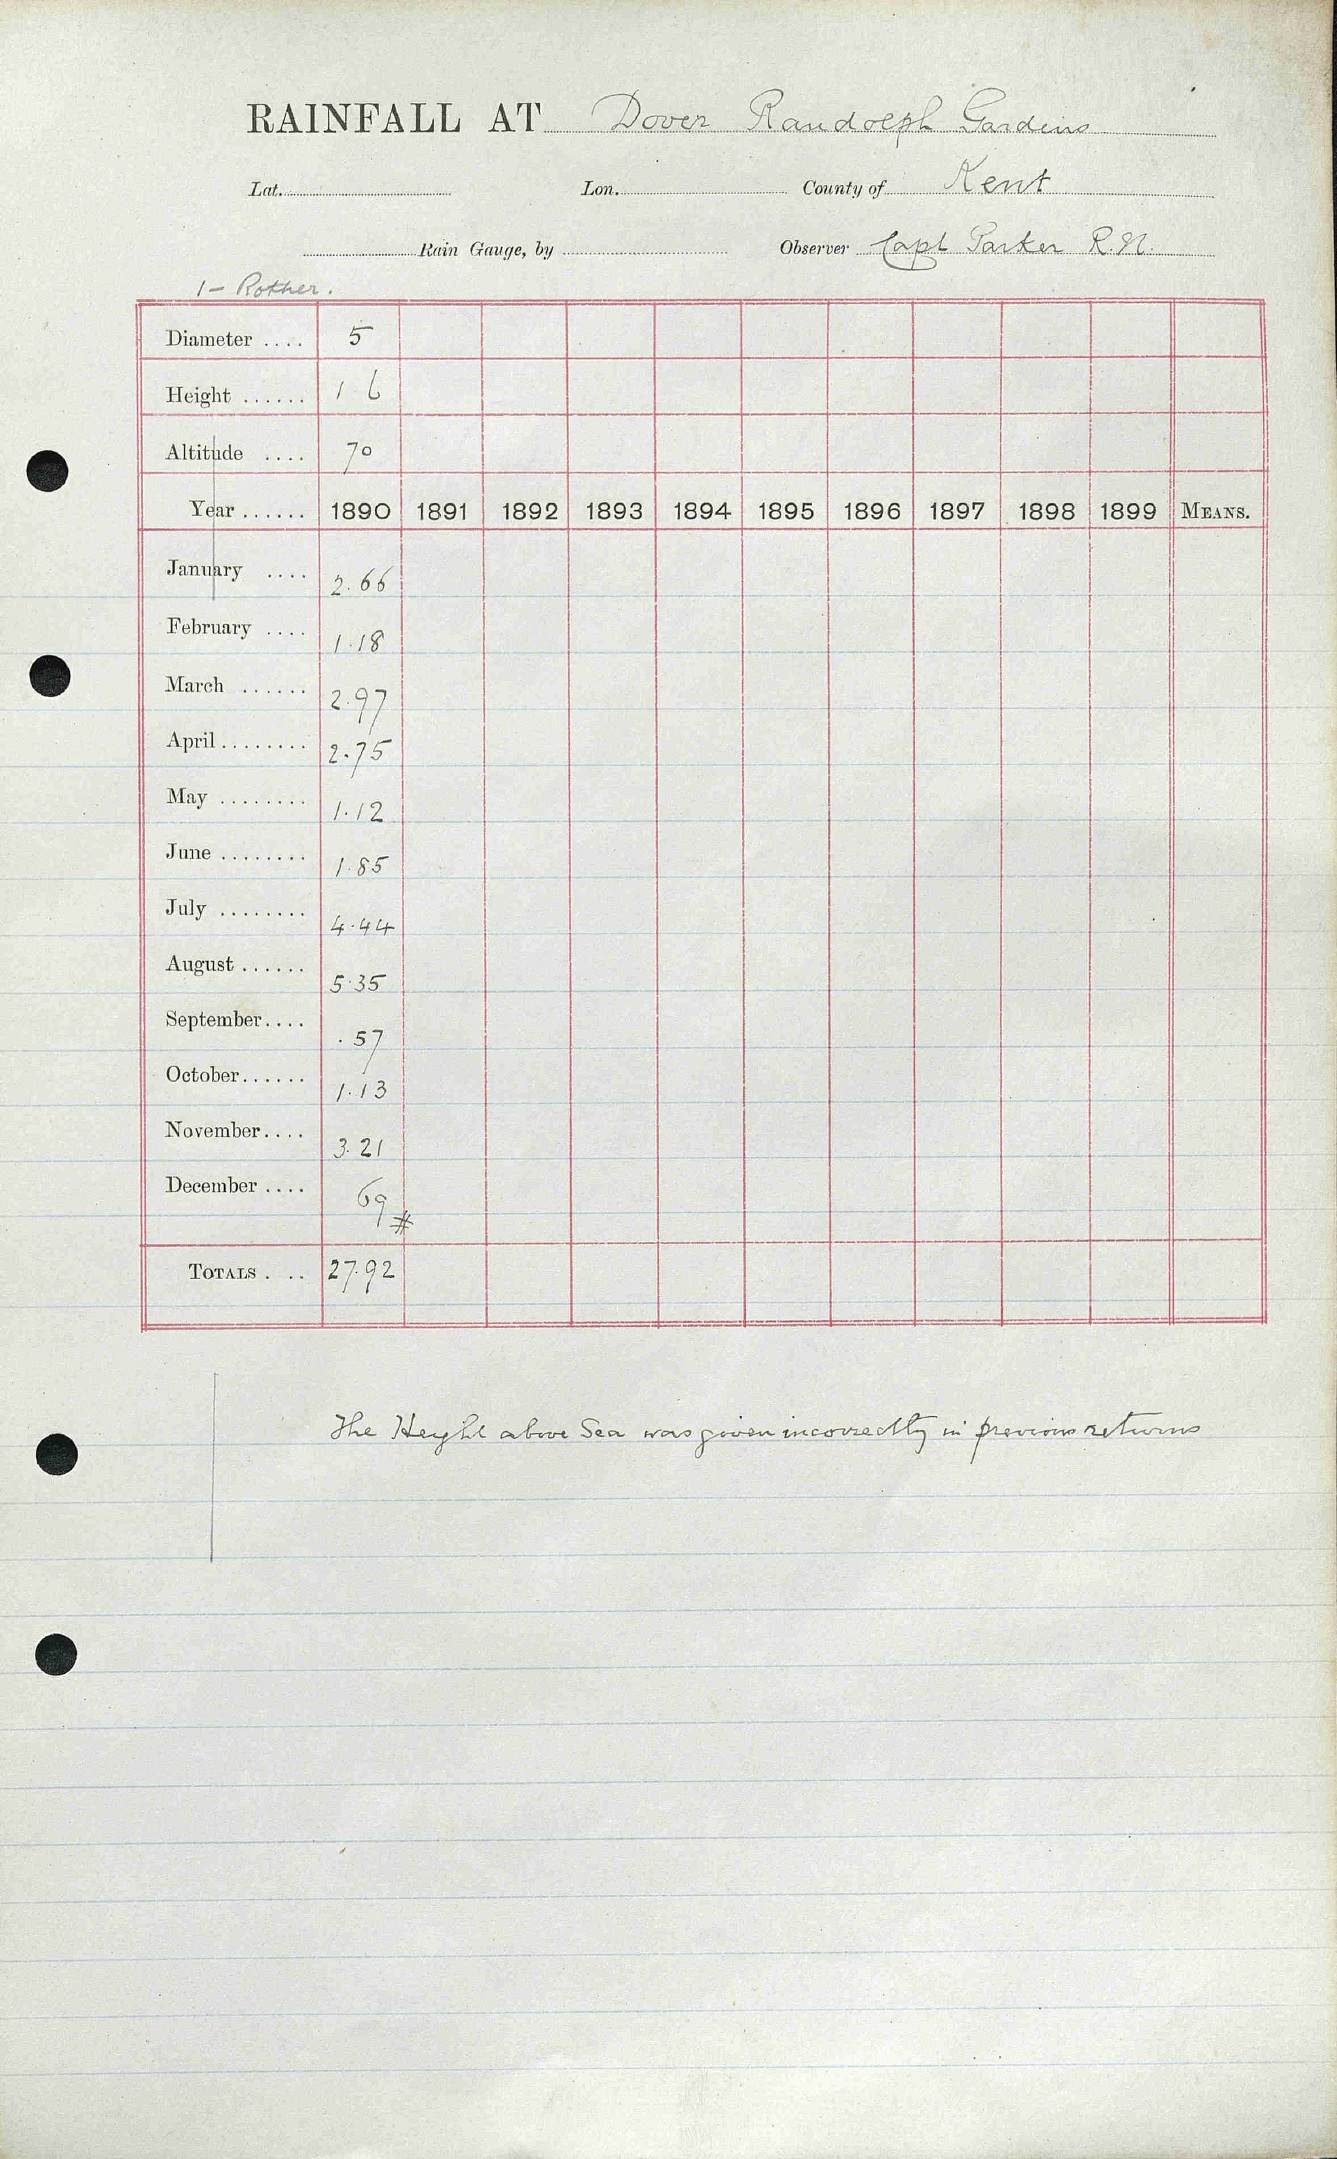 RAINFALL AT Dover Randolph Gardens
Lat. Lon. County of Kent
Rain Gauge, by Observer Capt Parker R.N.
1 - Rother.
Diameter .... 5
Height ...... 1 6
Altitude .... 70
Year ...... 1890 1891 1892 1893 1894 1895 1896 1897 1898 1899 MEANS.
January .... 2.66
February .... 1.18
March ...... 2.97
April ........ 2.75
May ........ 1.12
June ........ 1.85
July ........ 4.44
August ...... 5.35
September .... .57
October ...... 1.13
November .... 3.21
December .... 69 #
TOTALS . .. 27.92
The Height above Sea was given incorrectly in previous returns